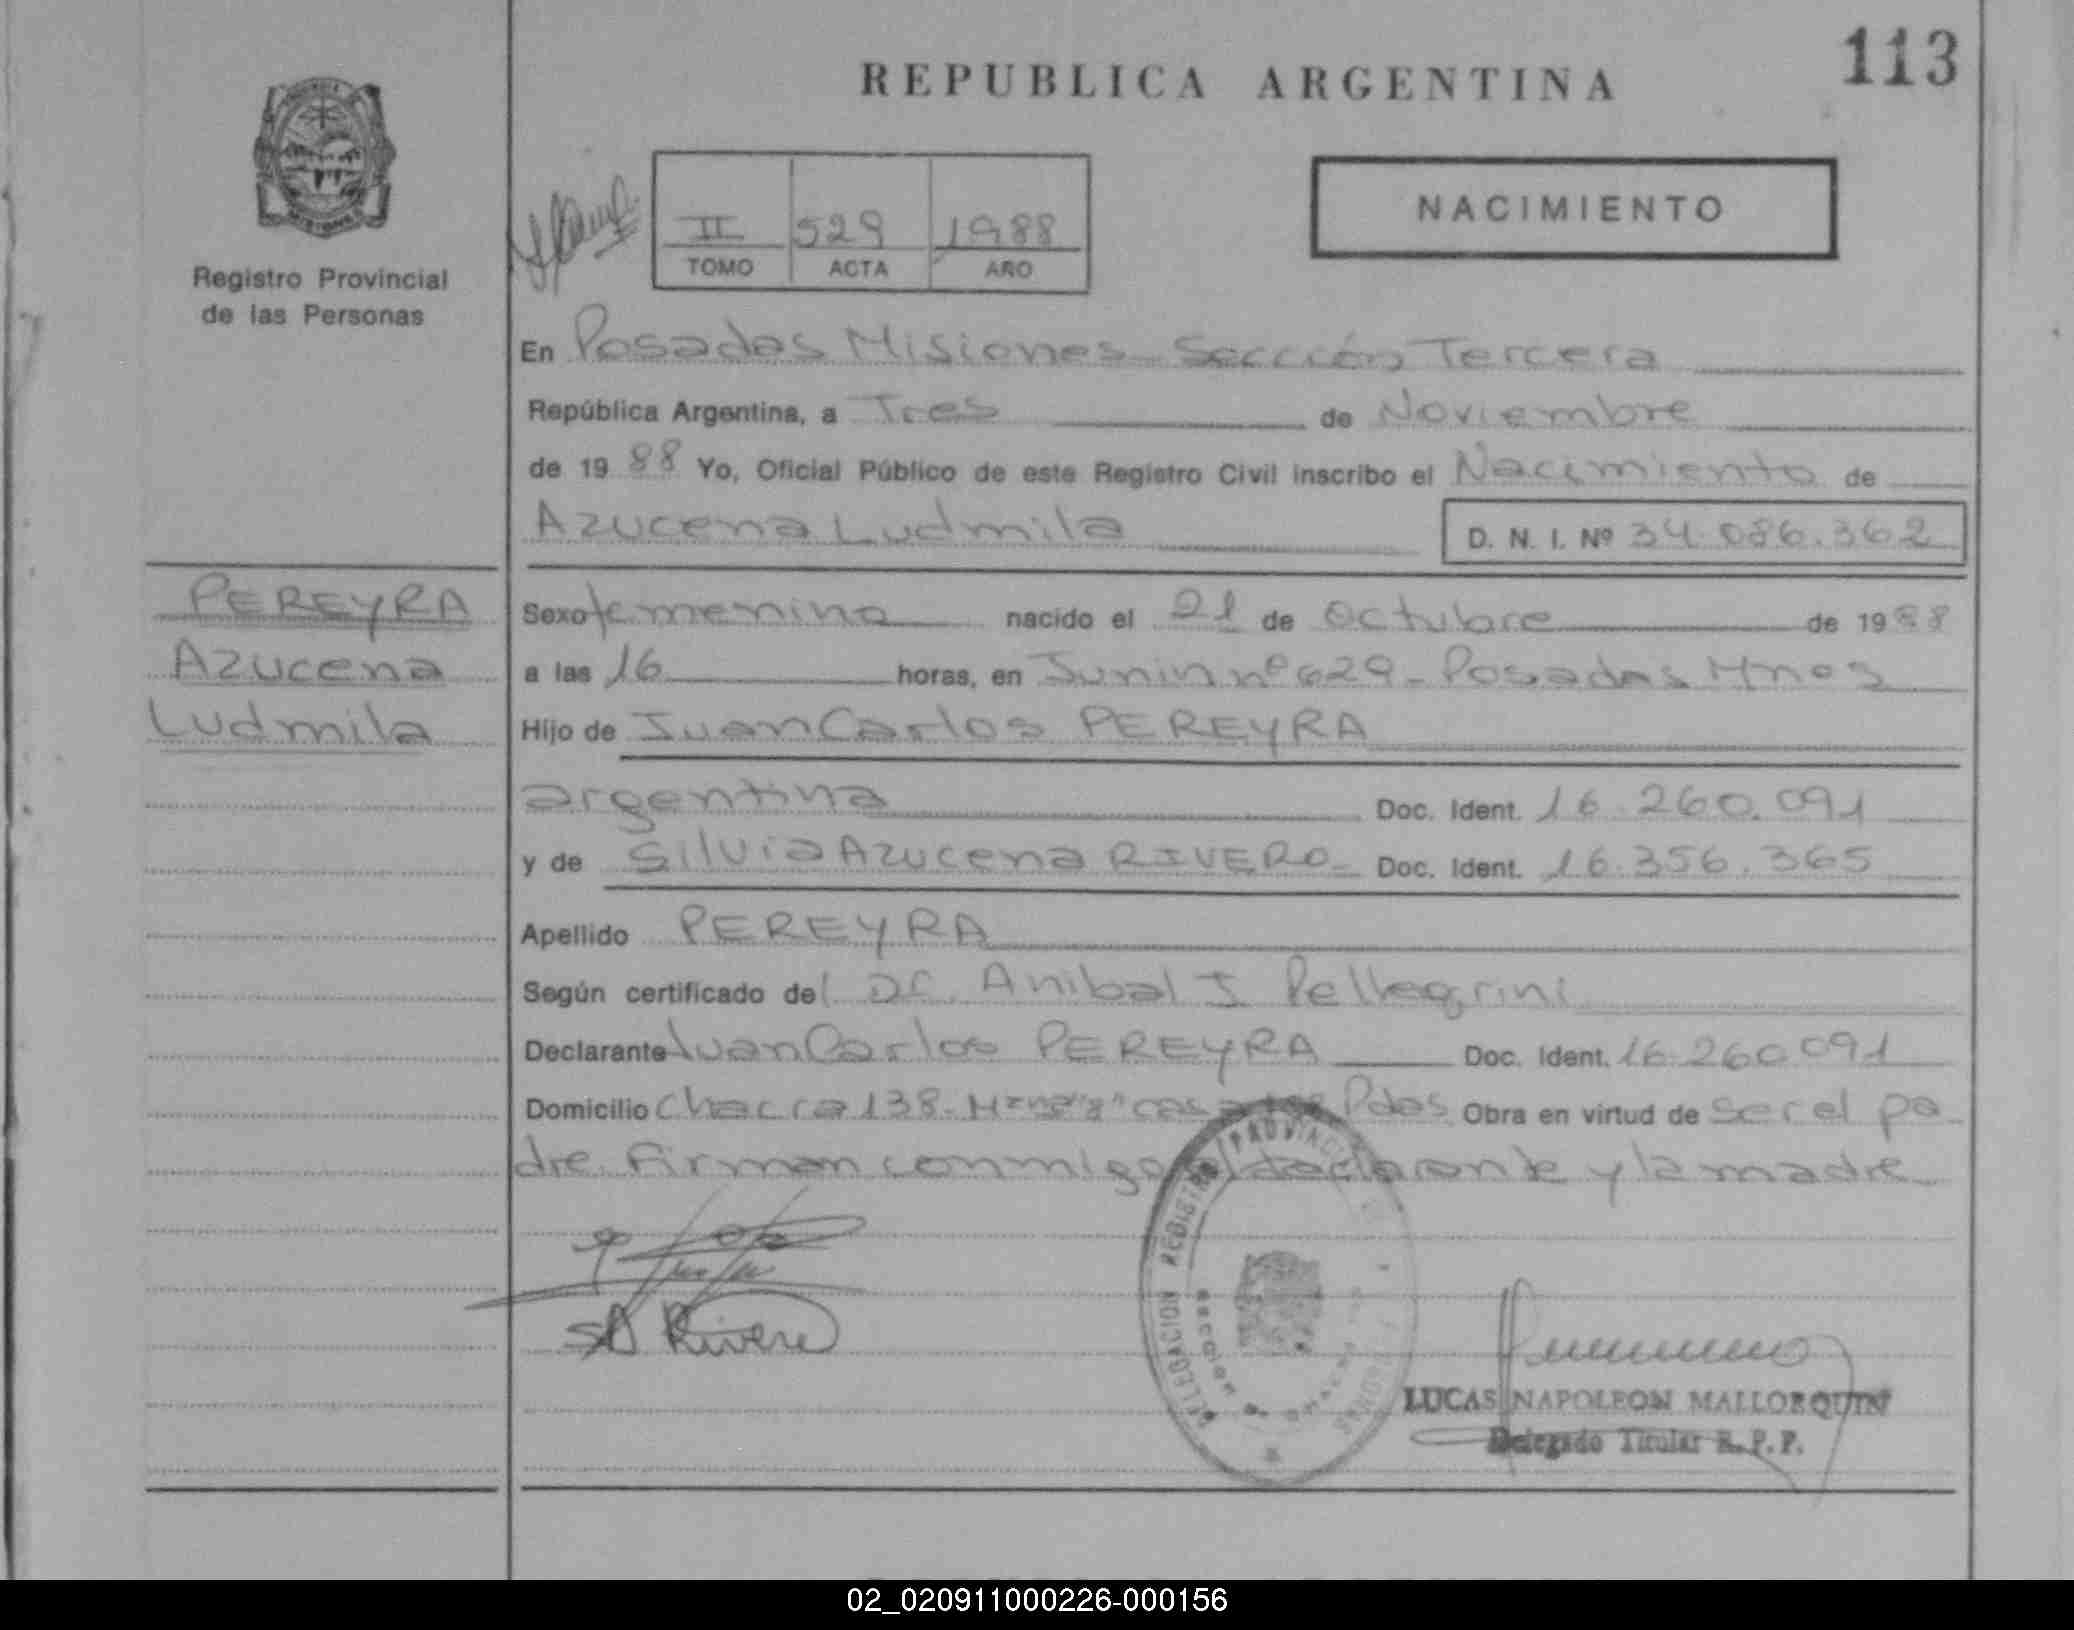 REPUBLICA ARGENTINA
113
NACIMIENTO
II 529 1988
TOMO ACTA AÑO
Registro Provincial
de las Personas
En Posadas Misiones Sección Tercera
República Argentina, a Tres de Noviembre
de 1988 Yo, Oficial Público de este Registro Civil inscribo el Nacimiento de
Azucena Ludmila D. N. I. Nº 34.086.362
PEREYRA
Azucena
Ludmila
Sexo femenino nacido el 21 de Octubre de 1988
a las 16 horas, en Junin nº 629 - Posadas Mnes
Hijo de Juan Carlos PEREYRA
argentina Doc. Ident. 16.260.091
y de Silvia Azucena RIVERO - Doc. Ident. 16.356.365
Apellido PEREYRA
Según certificado del Dr. Anibal J Pellegrini
Declarante Juan Carlos PEREYRA Doc. Ident. 16.260.091
Domicilio Chacra 138 - casa Pdas Obra en virtud de ser el pa-
dre. Firman conmigo el declarante y la madre
SA Rivero
DELEGACION REGISTRO PROVINCIAL
SECCION
LUCAS NAPOLEON MALLORQUIN
Delegado Titular R. P. P.
02_020911000226-000156